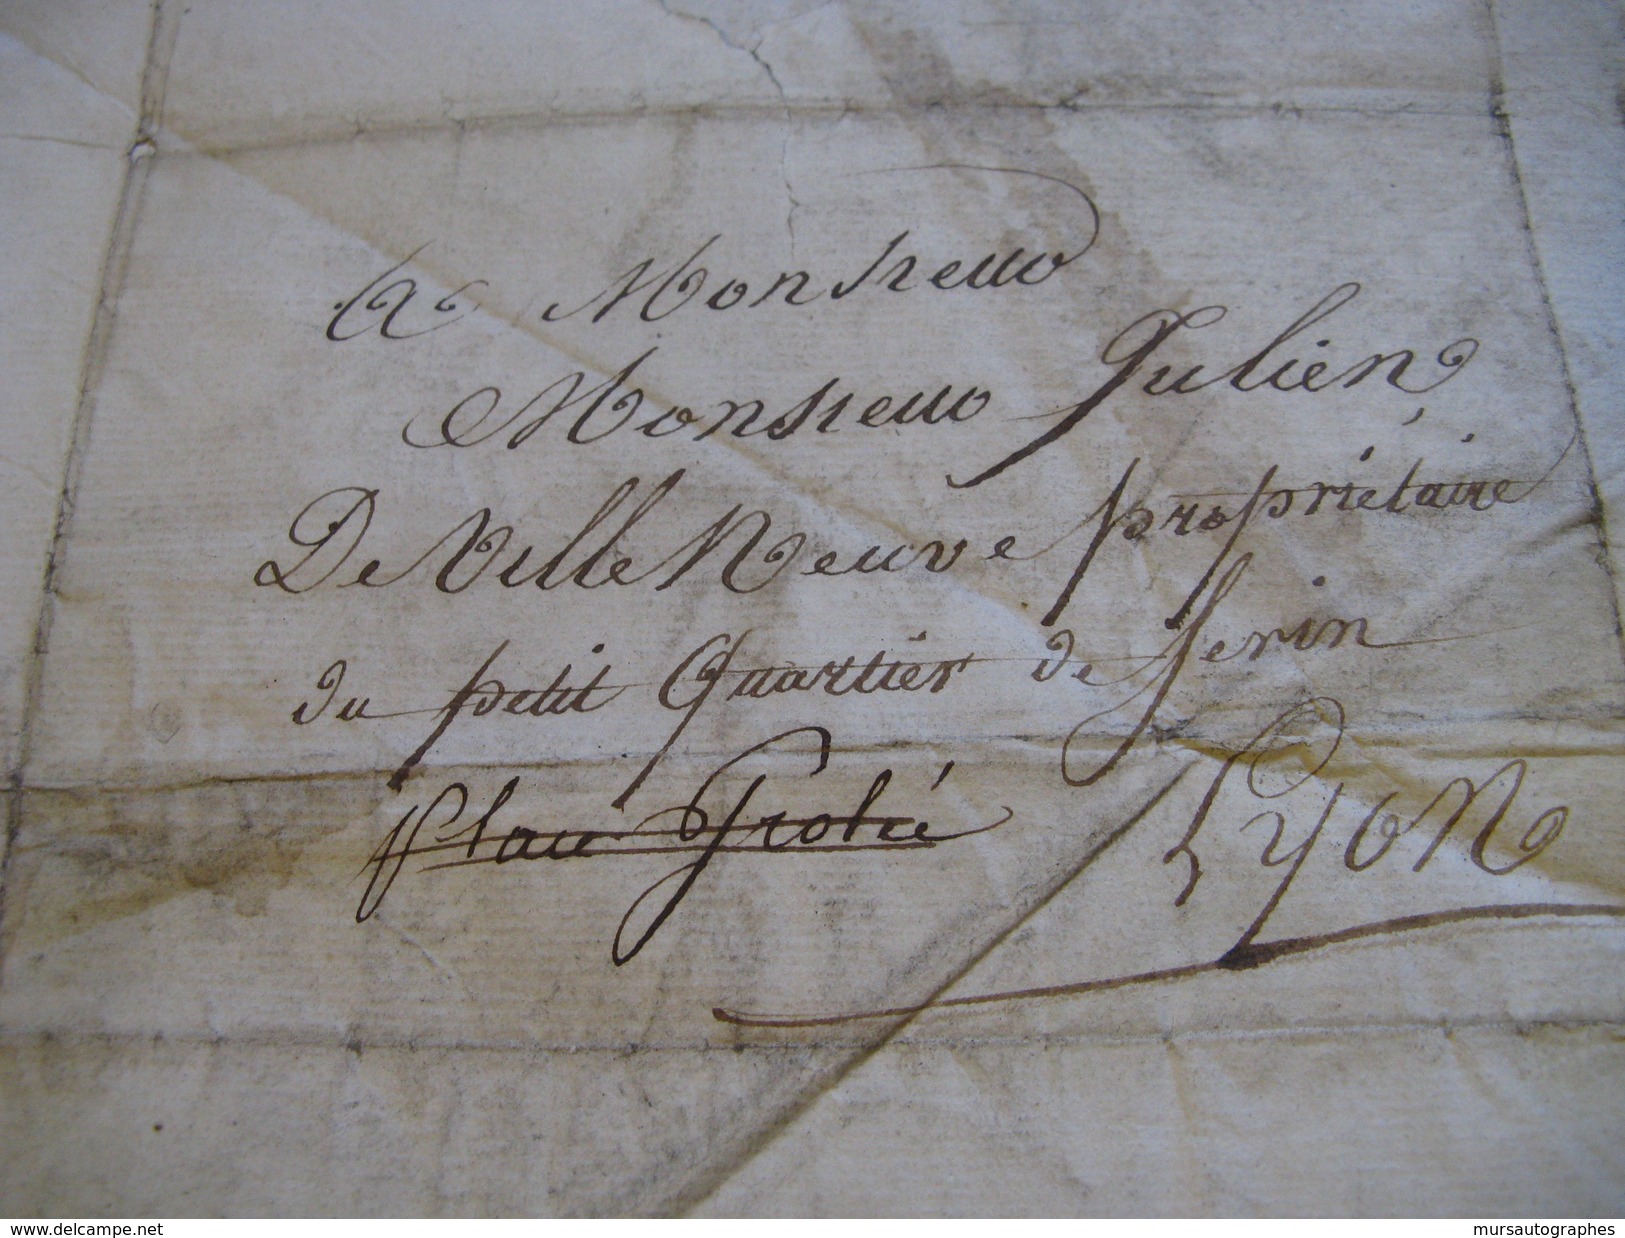 A Monsieur
Monsieur Julien
De Ville Neuve propriétaire
du petit Quartier de Serin
place
Lyon
www.delcampe.net
mursautographes